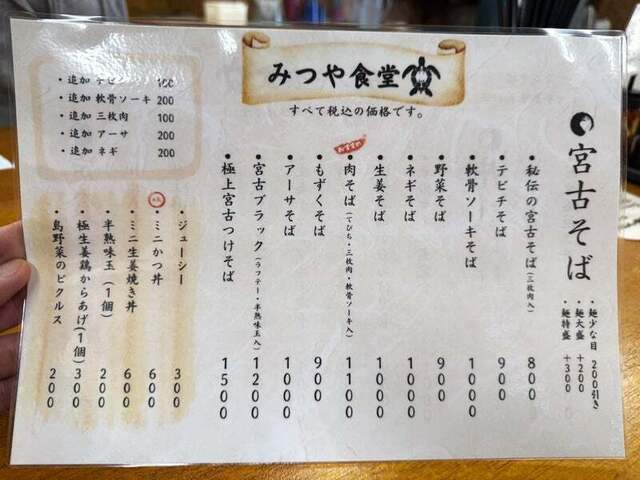 みつや食堂
すべて税込の価格です。
宮古そば
・麺少な目 200引き
・麺大盛 +200
・麺特盛 +300
・秘伝の宮古そば(三枚肉入) 800
・テビチそば 900
・軟骨ソーキそば 1000
・野菜そば 900
・ネギそば 1000
・生姜そば 1000
おすすめ
・肉そば(てびち・三枚肉・軟骨ソーキ入) 1100
・もずくそば 900
・アーサそば 1000
・宮古ブラック(ラフテー・半熟味玉入) 1200
・極上宮古つけそば 1500
・追加 テビチ 100
・追加 軟骨ソーキ 200
・追加 三枚肉 100
・追加 アーサ 200
・追加 ネギ 200
・ジューシー 300
・ミニかつ丼 600
・ミニ生姜焼き丼 600
・半熟味玉(1個) 200
・極生姜鶏からあげ(1個) 300
・島野菜のピクルス 200